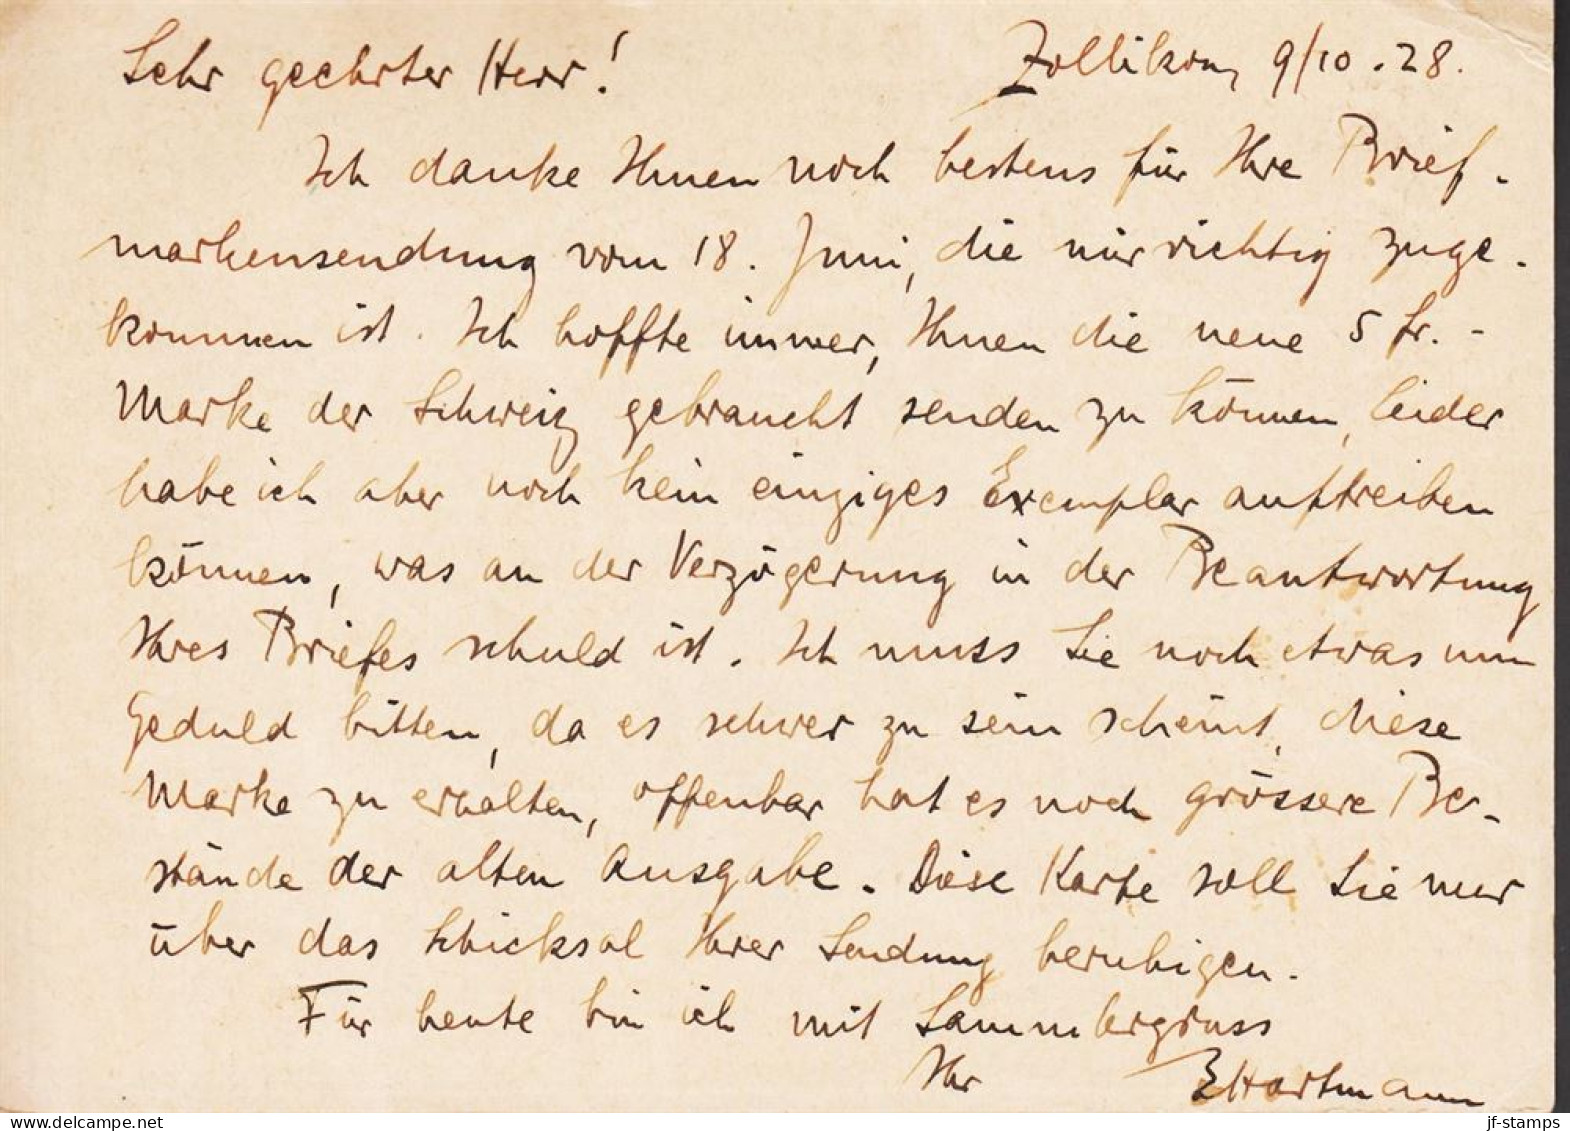 Sehr geehrter Herr! Zollikon, 9/10.28.
Ich danke Ihnen noch bestens für Ihre Brief-
markensendung vom 18. Juni, die mir richtig zuge-
kommen ist. Ich hoffte immer, Ihnen die neue 5 fr.-
Marke der Schweiz gebraucht senden zu können, leider
habe ich aber noch kein einziges Exemplar auftreiben
können, was an der Verzögerung in der Beantwortung
Ihres Briefes schuld ist. Ich muss Sie noch etwas um
Geduld bitten, da es schwer zu sein scheint, diese
Marke zu erhalten, offenbar hat es noch grössere Be-
stände der alten Ausgabe. Diese Karte soll Sie nur
über das Schicksal Ihrer Sendung beruhigen.
Für heute bin ich mit Sammlergruss
Ihr EHartmann
jf-stamps